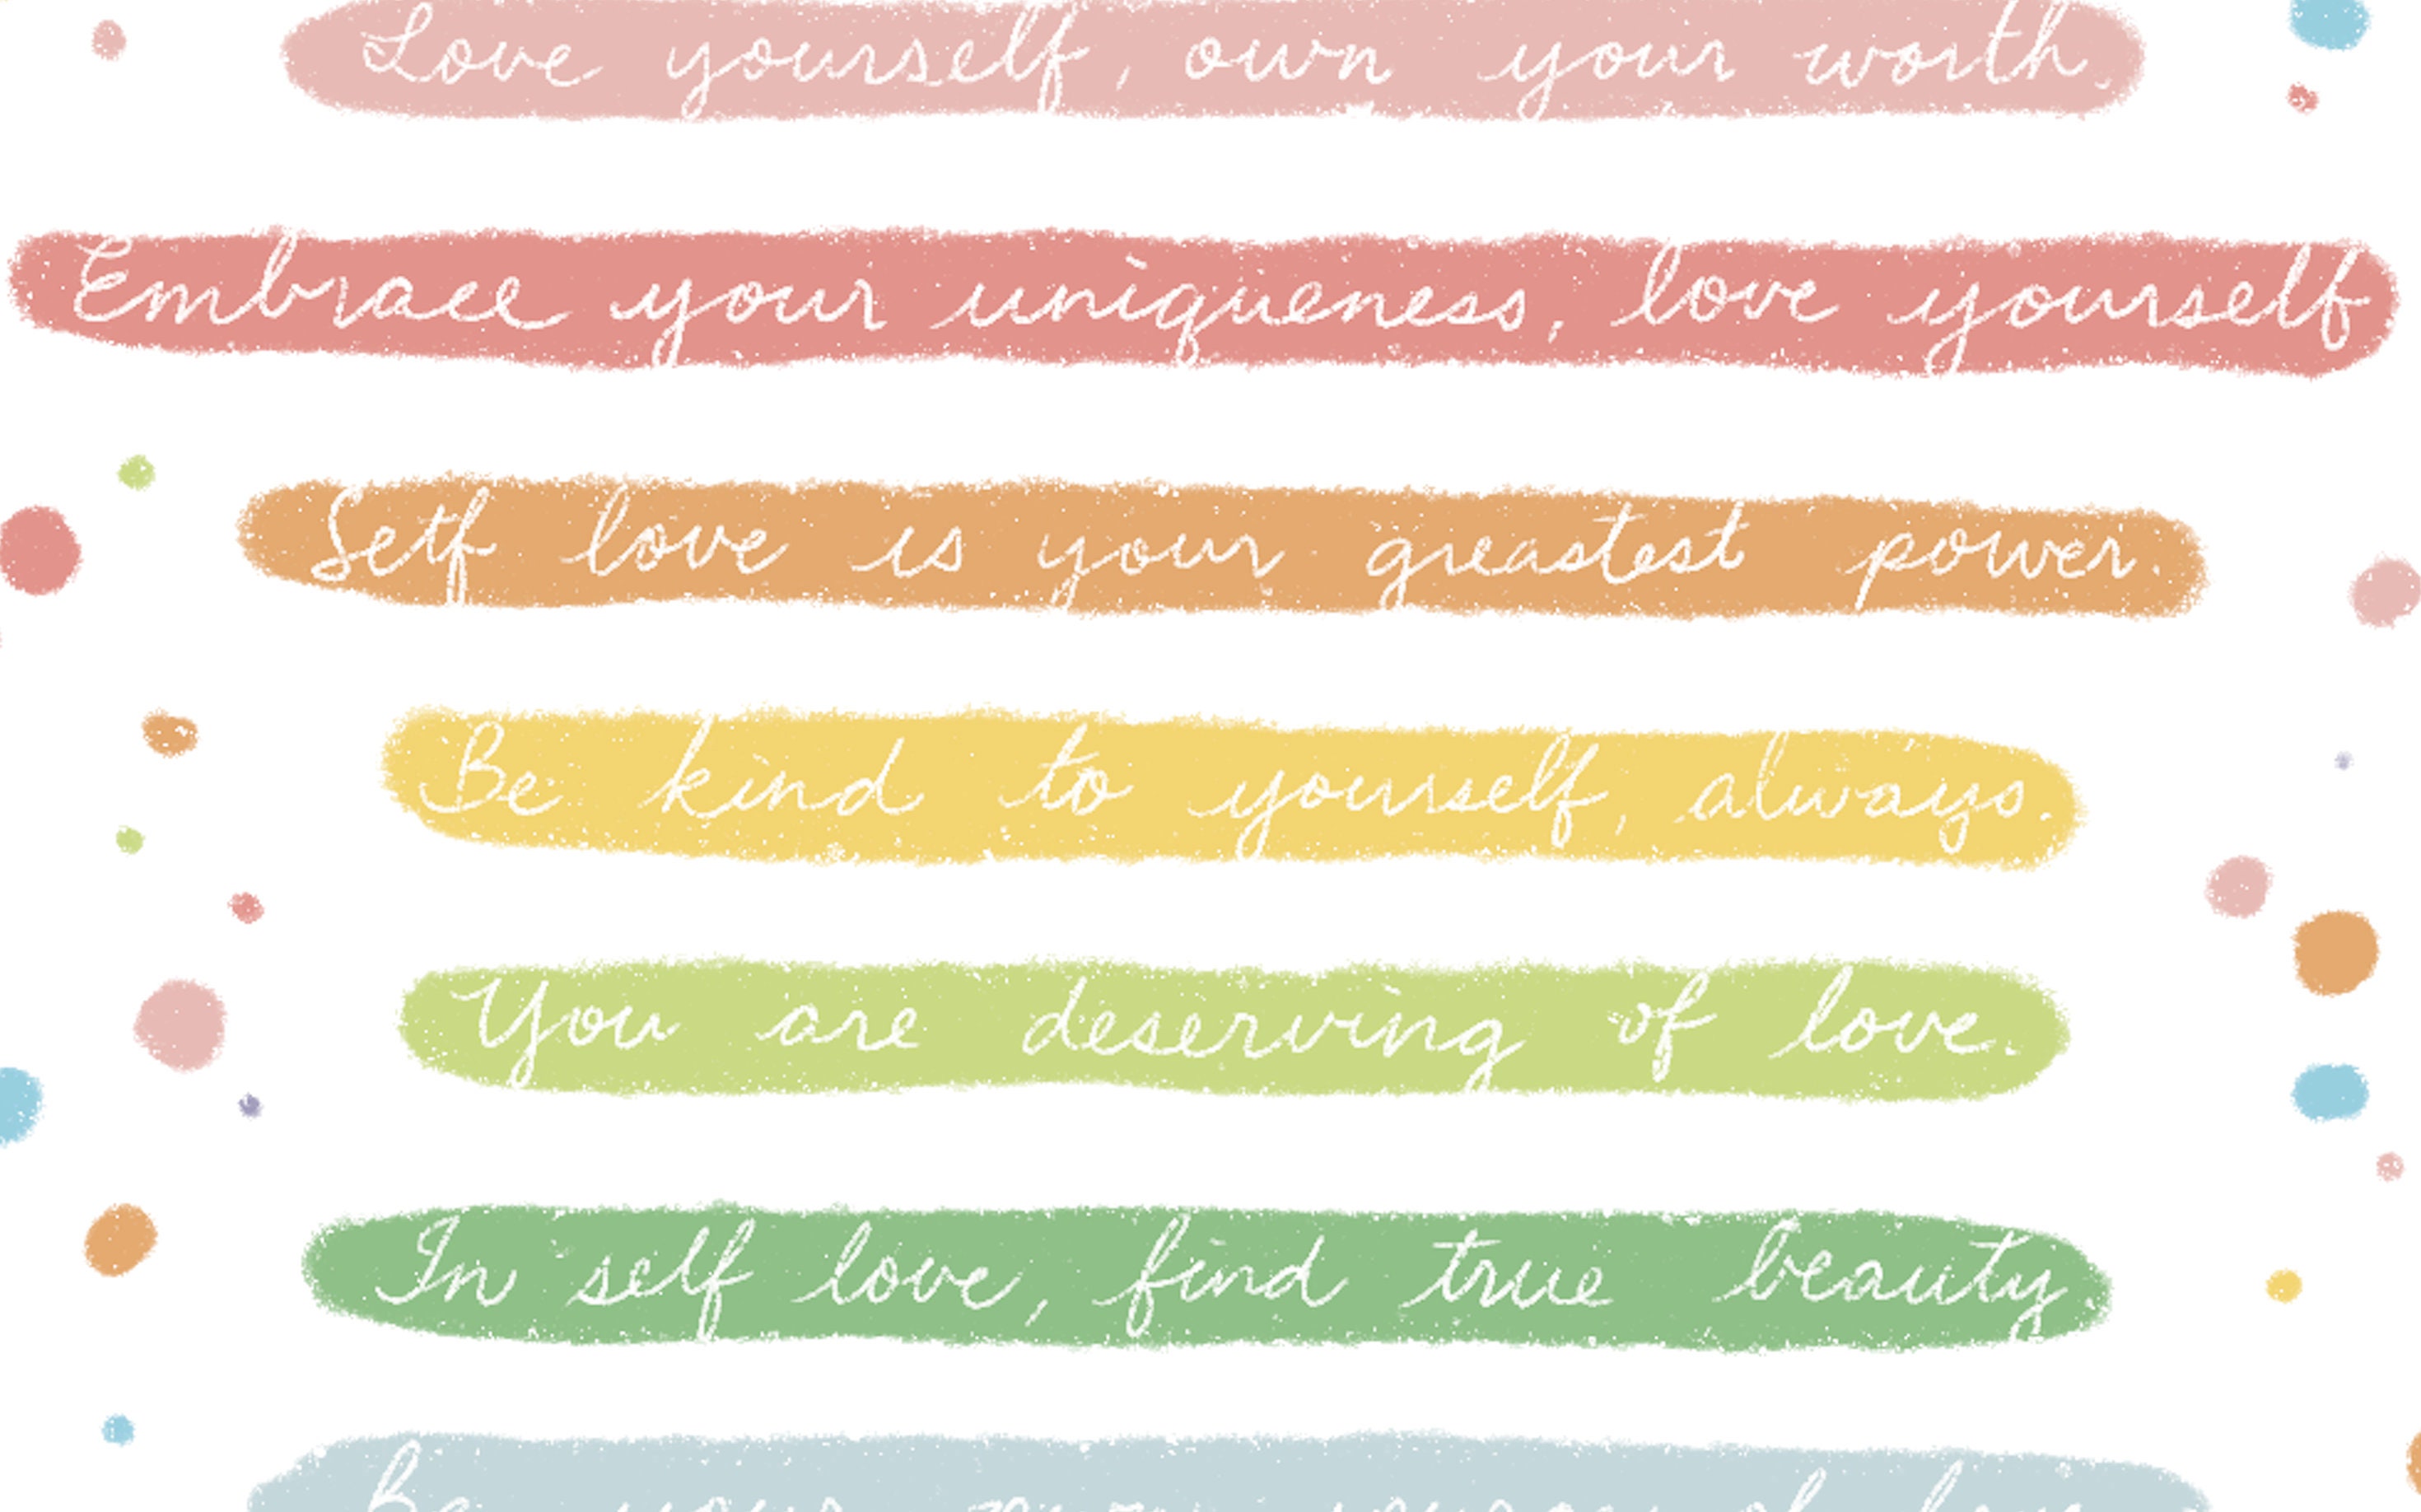 Love yourself, own your worth.
Embrace your uniqueness, love yourself
Self love is your greastest power.
Be kind to yourself, always.
You are deserving of love.
In self love, find true beauty.
Be your